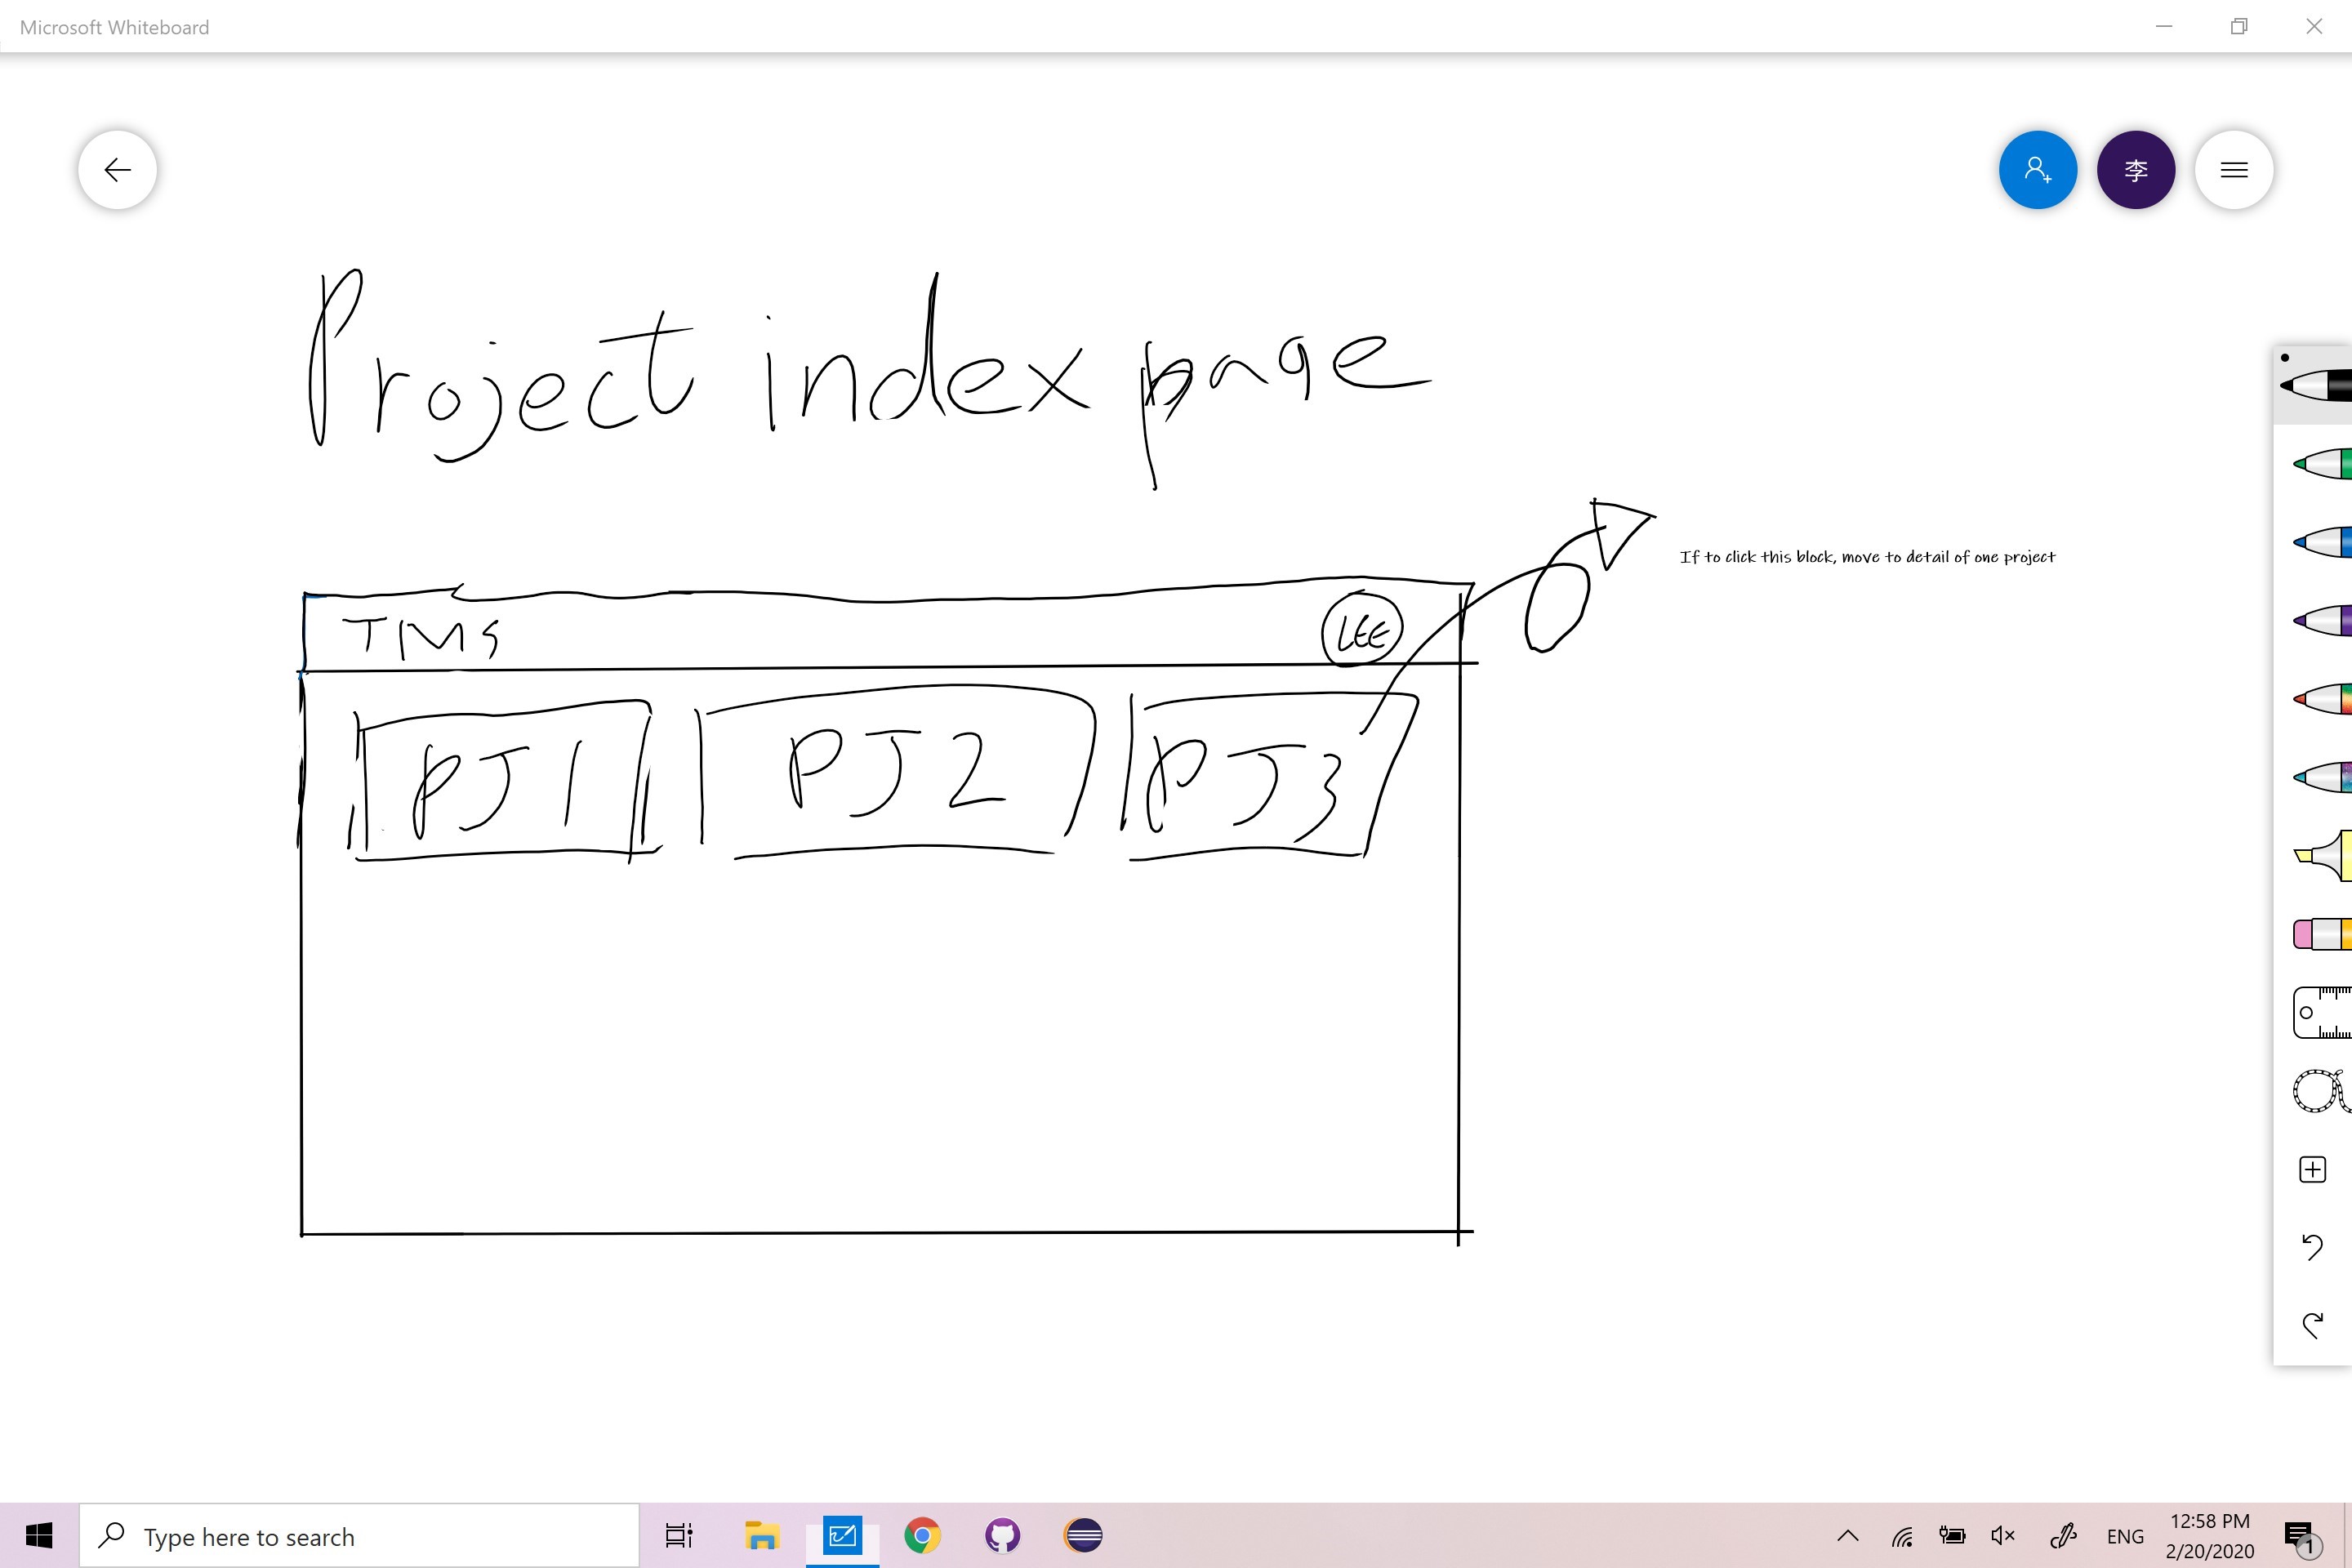 Microsoft Whiteboard
李
Project index page
If to click this block, move to detail of one project
TMS
LEE
PJ1
PJ2
PJ3
Type here to search
ENG
12:58 PM
2/20/2020
1